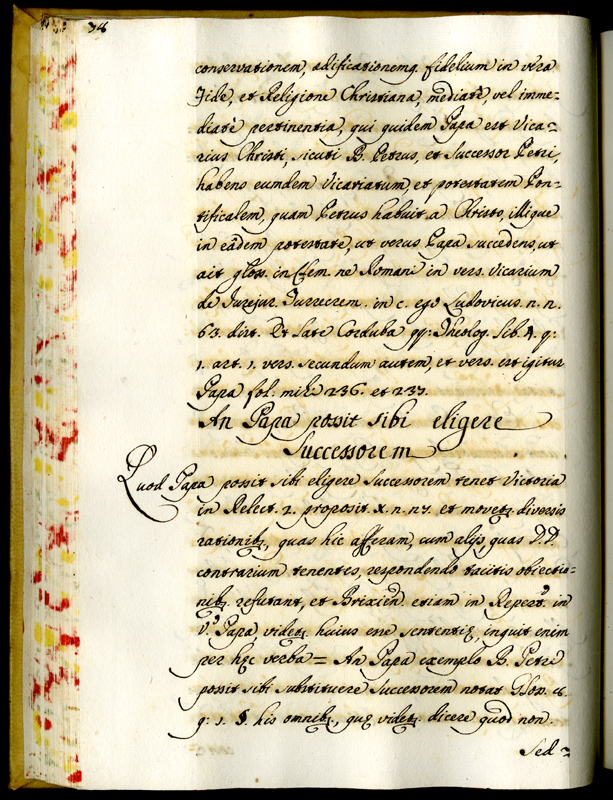 38
conservationem, ædificationemq. fidelium in vera
Fide, et Religione Christiana, mediatè, vel imme-
diatè pertinentia, qui quidem Papa est Vica-
rius Christi, sicuti B. Petrus, et Successor Petri,
habens eumdem Vicariatum, et potestatem Pon-
tificalem, quam Petrus habuit a Christo, illique
in eâdem potestate, ut verus Papa succedens, ut
ait gloss. in Clem. ne Romani in vers. vicarium
de Jurejur. Turrecrem. in c. ego Ludovicus. n. n.
63. dist. Et late Corduba qq: Theolog. lib. 4. q:
1. art. 1. vers. secundum autem, et vers. est igitur
Papa fol: mihi 236. et 237.
An Papa possit sibi eligere
Successorem
Quod Papa possit sibi eligere Successorem tenet Victoria
in Relect. 2. proposit. X. n. n7. et movetq. diversis
rationibq. quas hic afferam, cum alijs, quas D.D.
contrarium tenentes, respondendo tacitis obiectio-
nibq. refutant, et Brixien. etiam in Repert.º in
V.º Papa, videtq. huius esse sententię, inquit enim
per hęc verba = An Papa exemplo B. Petri
possit sibi substituere Successorem notat Glos. 8.
q: 1. §. his omnibq., quę videtq. dicere quod non.
Sed